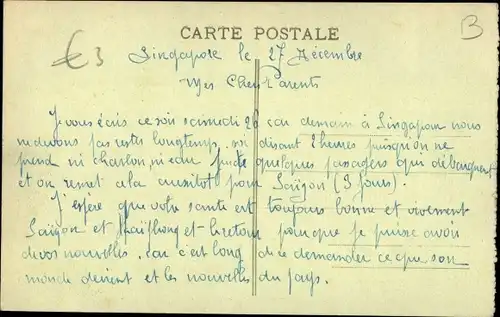 CARTE POSTALE
€ 3
B
Singapore le 27 Décembre
Mes Chers Parents
Je vous écris ce soir samedi 26 car demain à Singapour nous
ne devons pas rester longtemps, soi disant 2 heures puisqu'on ne
prend ni charbon, ni eau, juste quelques passagers qui débarquent
et on remet cela aussitôt pour Saïgon (3 jours).
J'espère que votre santé est toujours bonne et vivement
Saïgon et Haïphong et le retour pour que je puisse avoir
de vos nouvelles, car c'est long de se demander ce que son
monde devient et les nouvelles du pays.